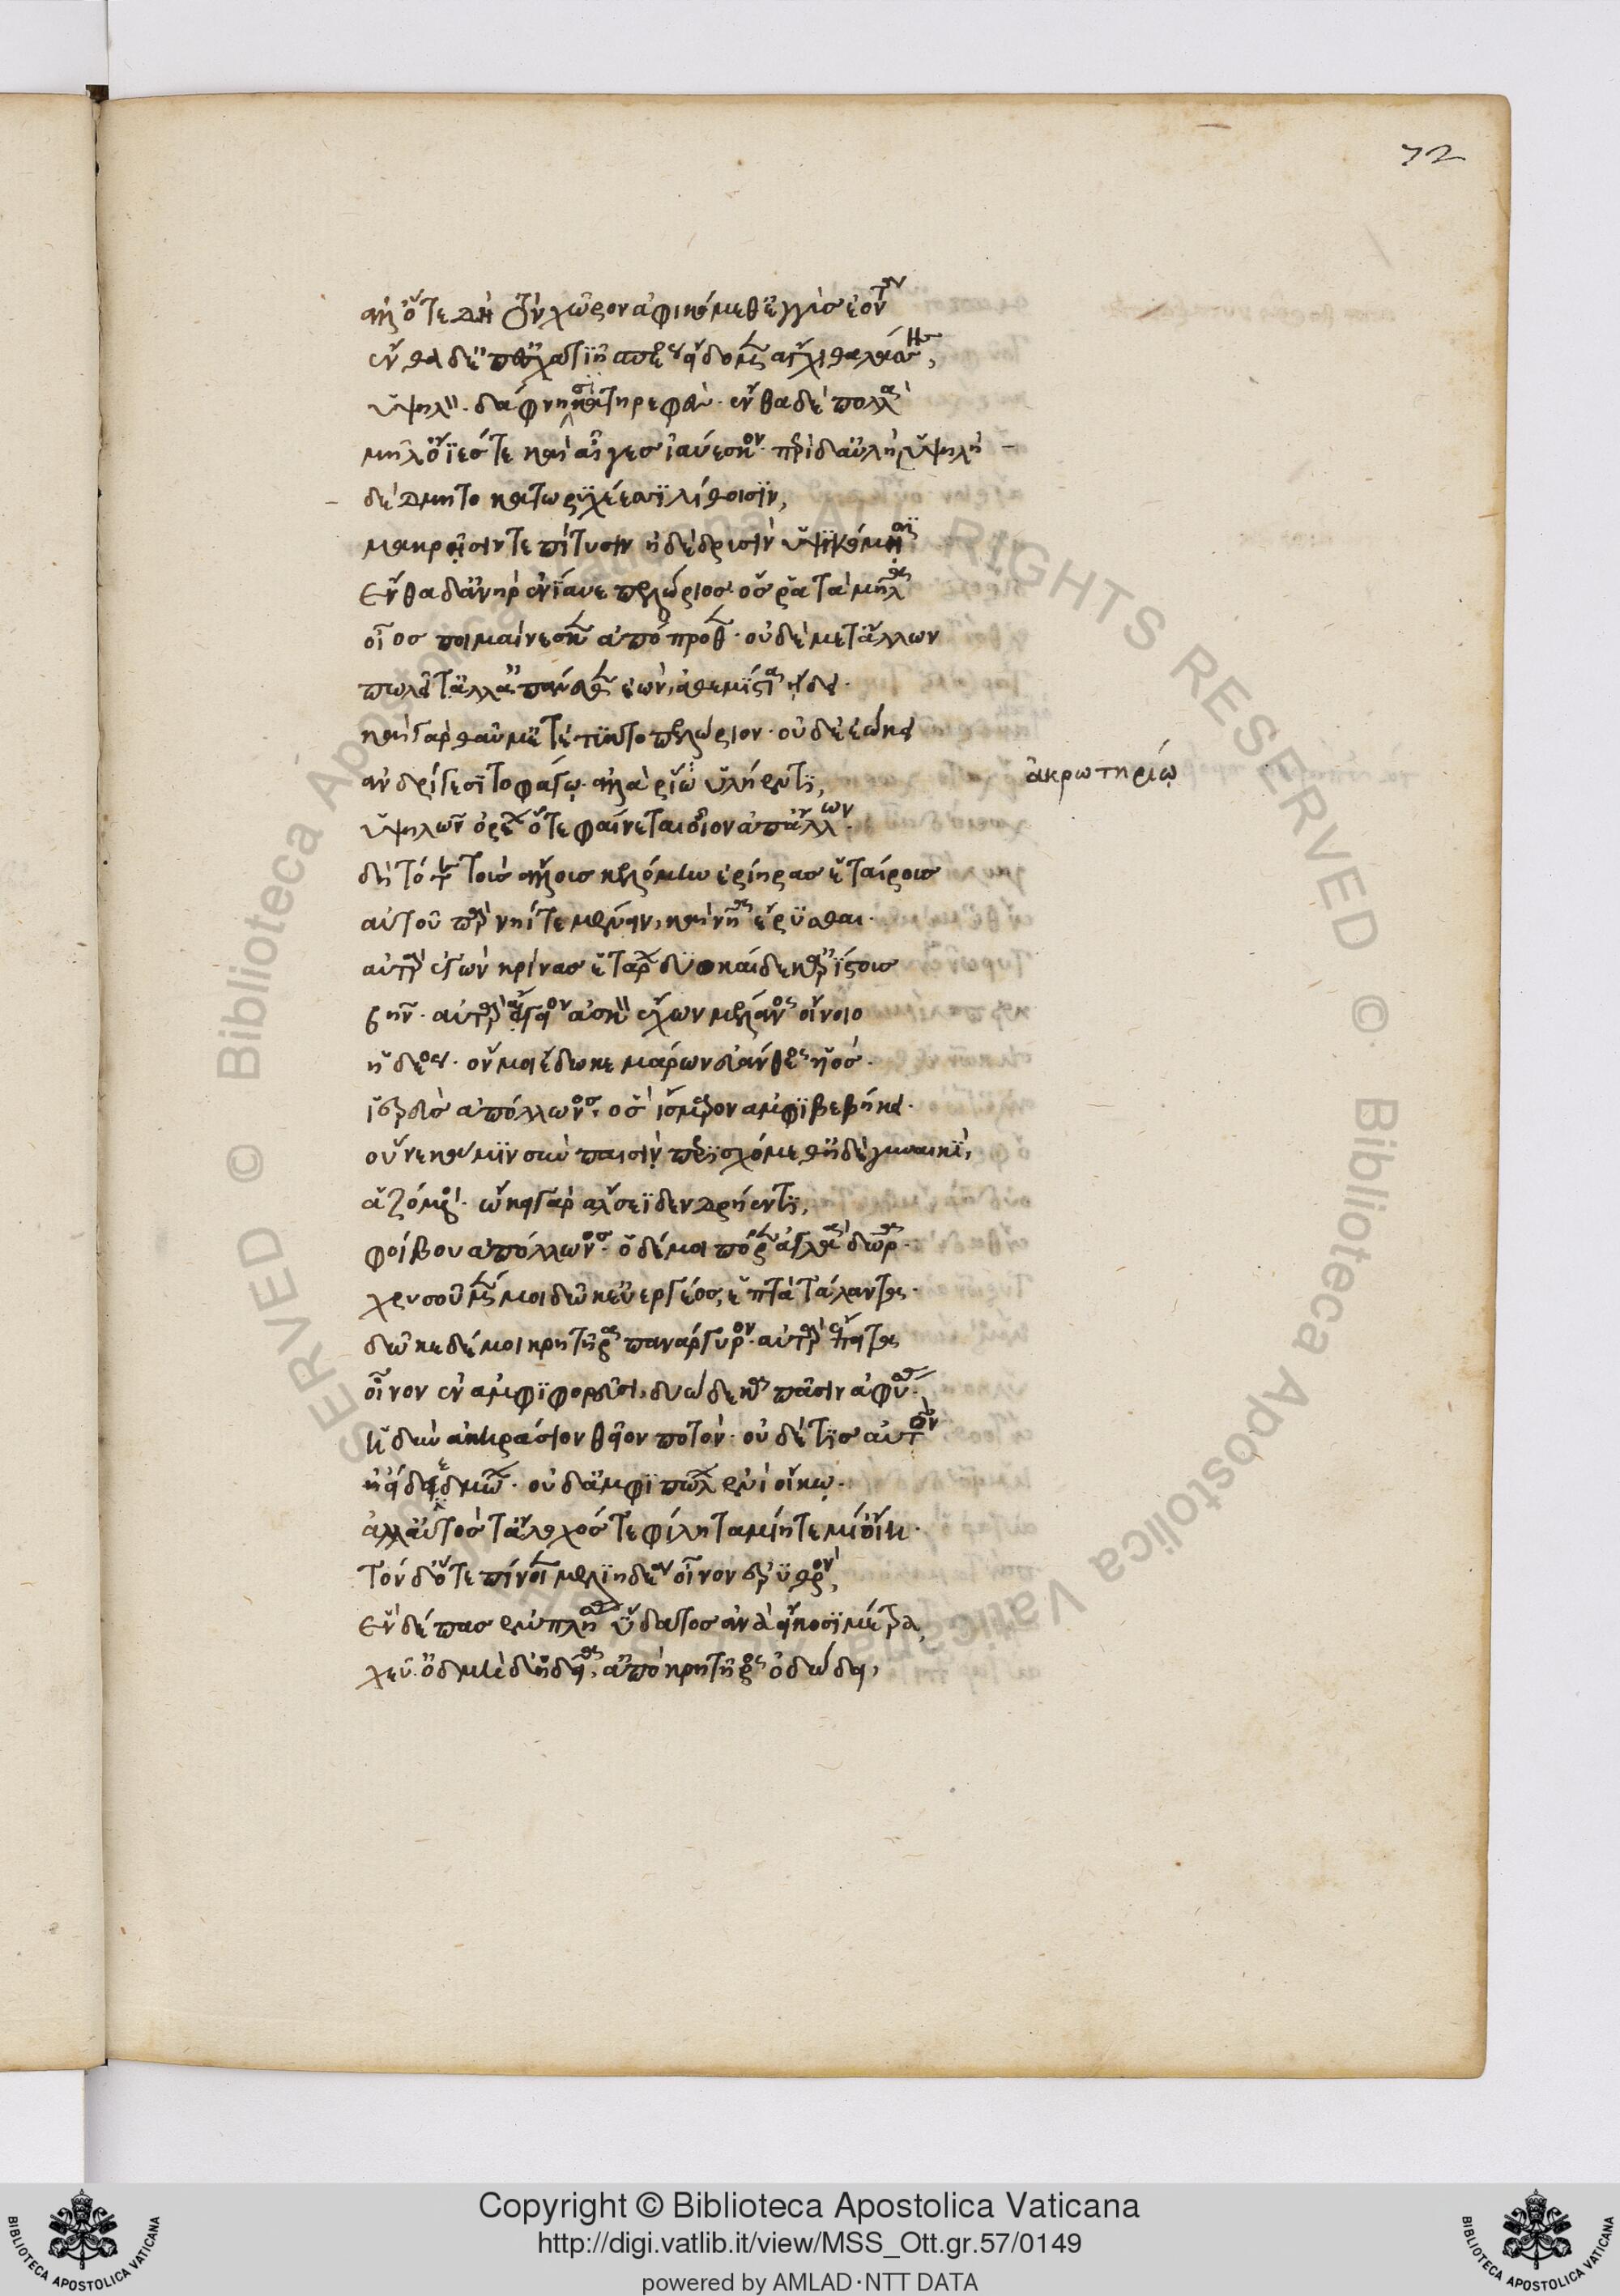 72
ἀλλ' ὅτε δὴ τὸν χῶρον ἀφικόμεθ' ἐγγὺς ἐόντα
ἔνθα δ' ἐπ' ἐσχατιῇ σπέος εἴδομεν ἄγχι θαλάσσης,
ὑψηλὸν· δάφνῃσι κατηρεφές· ἔνθα δὲ πολλὰ
μῆλ' ὄϊές τε καὶ αἶγες ἰαύεσκον· περὶ δ' αὐλὴ ὑψηλὴ
δέδμητο κατωρυχέεσσι λίθοισιν,
μακρῇσίν τε πίτυσιν ἠδὲ δρυσὶν ὑψικόμοισι
ἔνθα δ' ἀνὴρ ἐνίαυε πελώριος ὅς ῥα τὰ μῆλα
οἶος ποιμαίνεσκεν ἀπόπροθεν· οὐδὲ μετ' ἄλλων
πωλεῖτ' ἀλλ' ἀπάνευθεν ἐὼν, ἀθεμίστια ᾔδει·
καὶ γὰρ θαῦμ' ἐτέτυκτο πελώριον· οὐδὲ ἐῴκει
ἀνδρί γε σιτοφάγῳ· ἀλλὰ ῥίῳ ὑλήεντι,
ἀκρωτηρίῳ
ὑψηλῶν ὀρέων ὅτε φαίνεται οἶον ἀπ' ἄλλων·
δὴ τότε τοῖς ἄλλοις κελόμην ἐρίηρας ἑταίροις
αὐτοῦ πὰρ νηΐ τε μένειν, καὶ νῆα ἔρυσθαι·
αὐτὰρ ἐγὼν κρίνας ἑτάρων δυοκαίδεκ' ἀρίστους
βῆν· αὐτὰρ αἴγειον ἀσκὸν ἔχων μέλανος οἴνοιο
ἡδέος· ὅν μοι ἔδωκε μάρων εὐάνθεος υἱός·
ἱερεὺς ἀπόλλωνος· ὃς ἴσμαρον ἀμφιβεβήκει·
οὕνεκά μιν σὺν παισὶν περισχόμεθ' ἠδὲ γυναικὶ,
ἁζόμενοι· ᾤκει γὰρ ἄλσεϊ δενδρήεντι,
φοίβου ἀπόλλωνος· ὃ δέ μοι πόρεν ἀγλαὰ δῶρα·
χρυσοῦ μέν μοι δῶκ' εὐεργέος, ἑπτὰ τάλαντα·
δῶκε δέ μοι κρητῆρα πανάργυρον· αὐτὰρ ἔπειτα
οἶνον ἐν ἀμφιφορεῦσι, δυώδεκα πᾶσιν ἀφύσσας·
ἡδὺν ἀκηράσιον θεῖον ποτὸν· οὐδέ τις αὐτὸν
ἠείδει δμώων· οὐδ' ἀμφιπόλων ἐνὶ οἴκῳ·
ἀλλ' αὐτὸς τ' ἄλοχός τε φίλη ταμίη τε μί' οἴη·
τὸν δ' ὅτε πίνοιεν μελιηδέα οἶνον ἐρυθρὸν,
ἓν δέπας ἐμπλήσας ὕδατος ἀνὰ εἴκοσι μέτρα,
χεῦ· ὀδμὴ δ' ἡδεῖα, ἀπὸ κρητῆρος ὀδώδει,
Copyright © Biblioteca Apostolica Vaticana
http://digi.vatlib.it/view/MSS_Ott.gr.57/0149
powered by AMLAD·NTT DATA
BIBLIOTECA APOSTOLICA VATICANA
BIBLIOTECA APOSTOLICA VATICANA